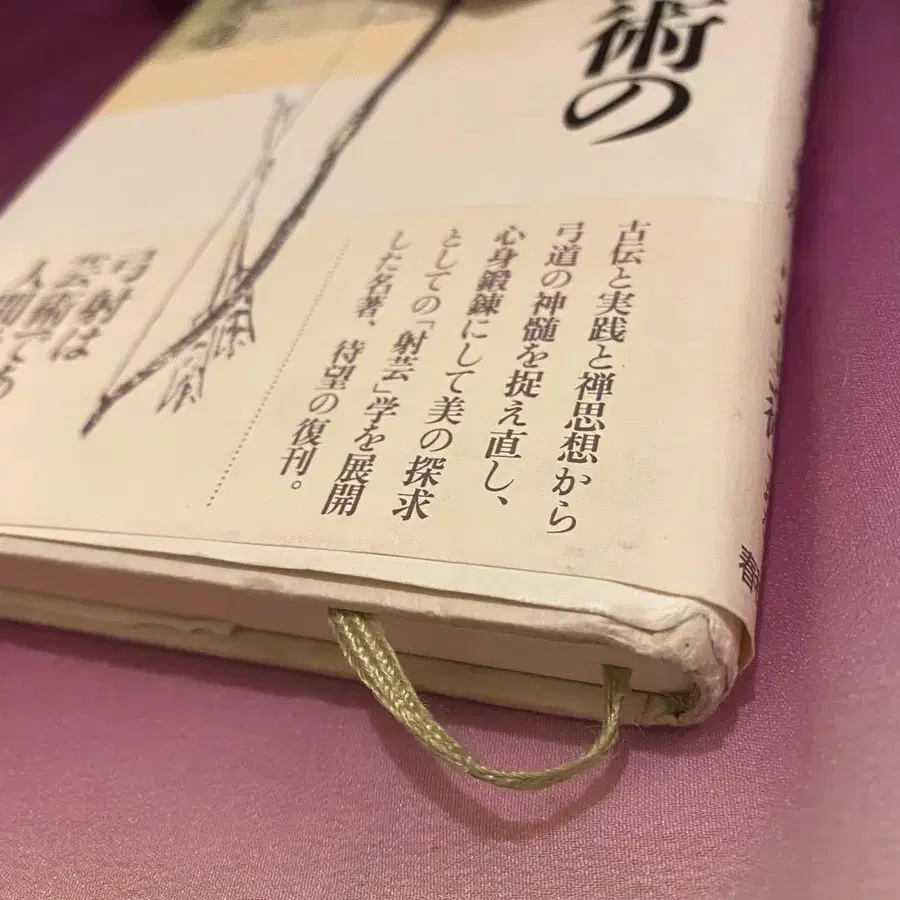 術の
古伝と実践と禅思想から
弓道の神髄を捉え直し、
心身鍛錬にして美の探求
としての「射芸」学を展開
した名著、待望の復刊。
弓射は
芸術で
人間
春